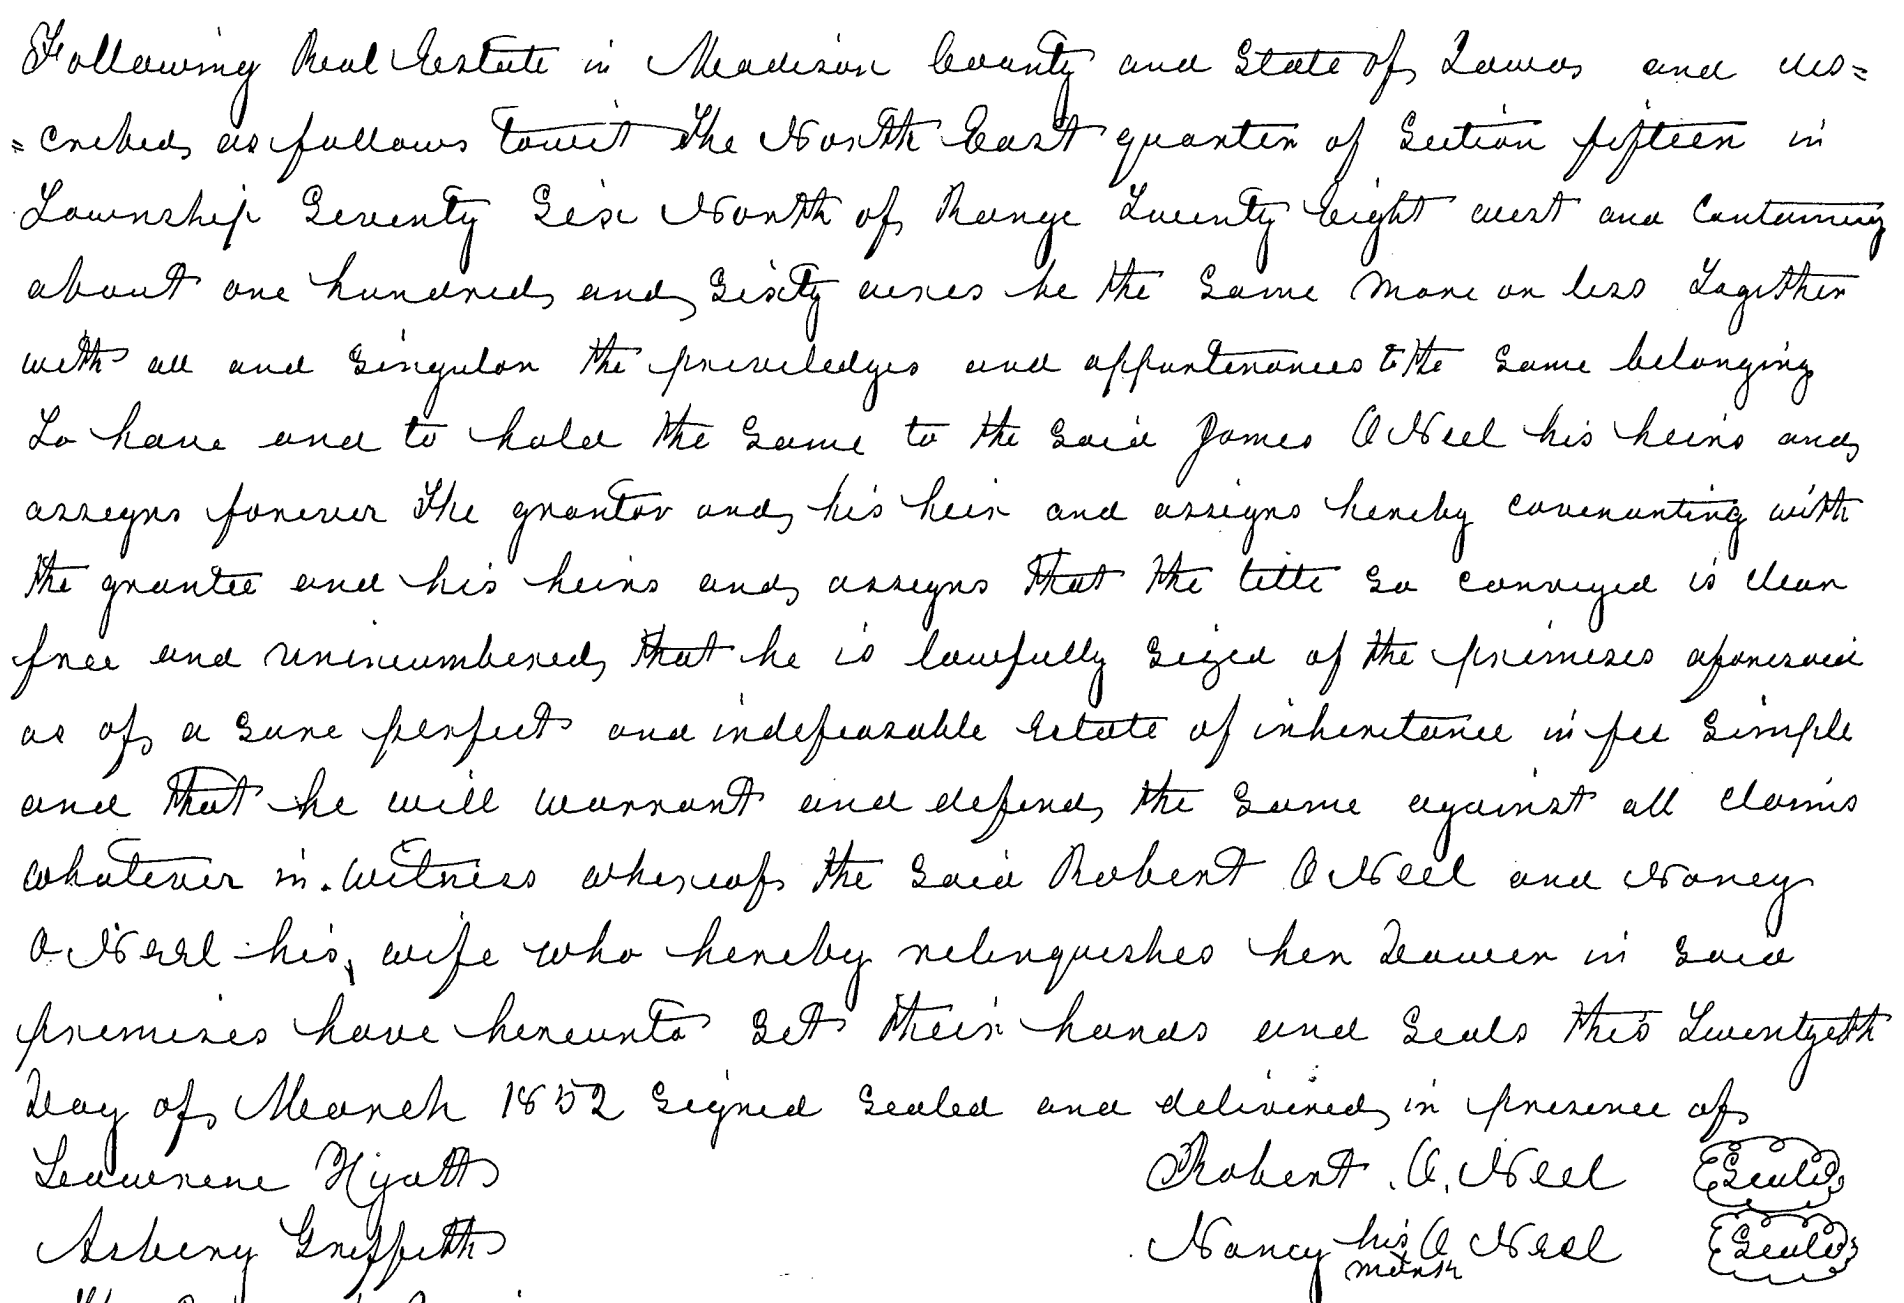 Following Real Estate in Madison County and State of Iowa and des=
=cribed as follows towit The North East quarter of Section fifteen in
Township Seventy Six North of Range Twenty Eight west and containing
about one hundred and Sixty acres be the Same more or less Together
with all and Singular the priviledges and appurtenances to the Same belonging
To have and to hold the Same to the Said James O Neel his heirs and
assigns forever The grantor and his heir and assigns hereby covenanting with
the grantee and his heirs and assigns that the title So conveyed is clear
free and unincumbered that he is lawfully Sized of the premises aforesaid
as of a Sure perfect and indefeasable Estate of inheritance in fee Simple
and that he will warrant and defend the Same against all claims
whatever in. witness whereof the Said Robert O Neel and Nancy
O Neel his wife who hereby relinquishes her Dower in Said
premises have hereunto Set their hands and Seals this Twentyeth
Day of March 1852 Signed Sealed and delivered in presence of
Lawrence Hyatt Robert . O, Neel Seal
Asbery Griffith Nancy his x mark O Neel Seal